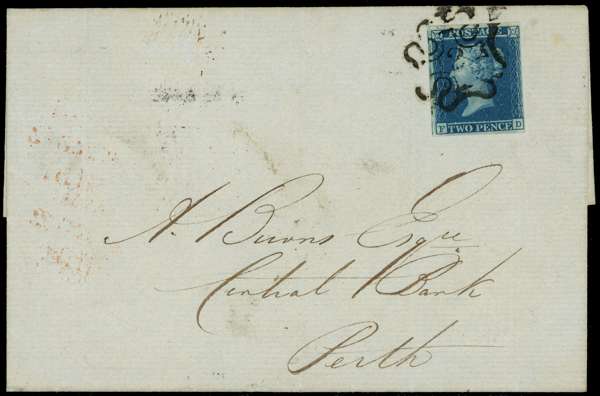 POSTAGE
TWO PENCE
A. Burns Esqre
Central Bank
Perth